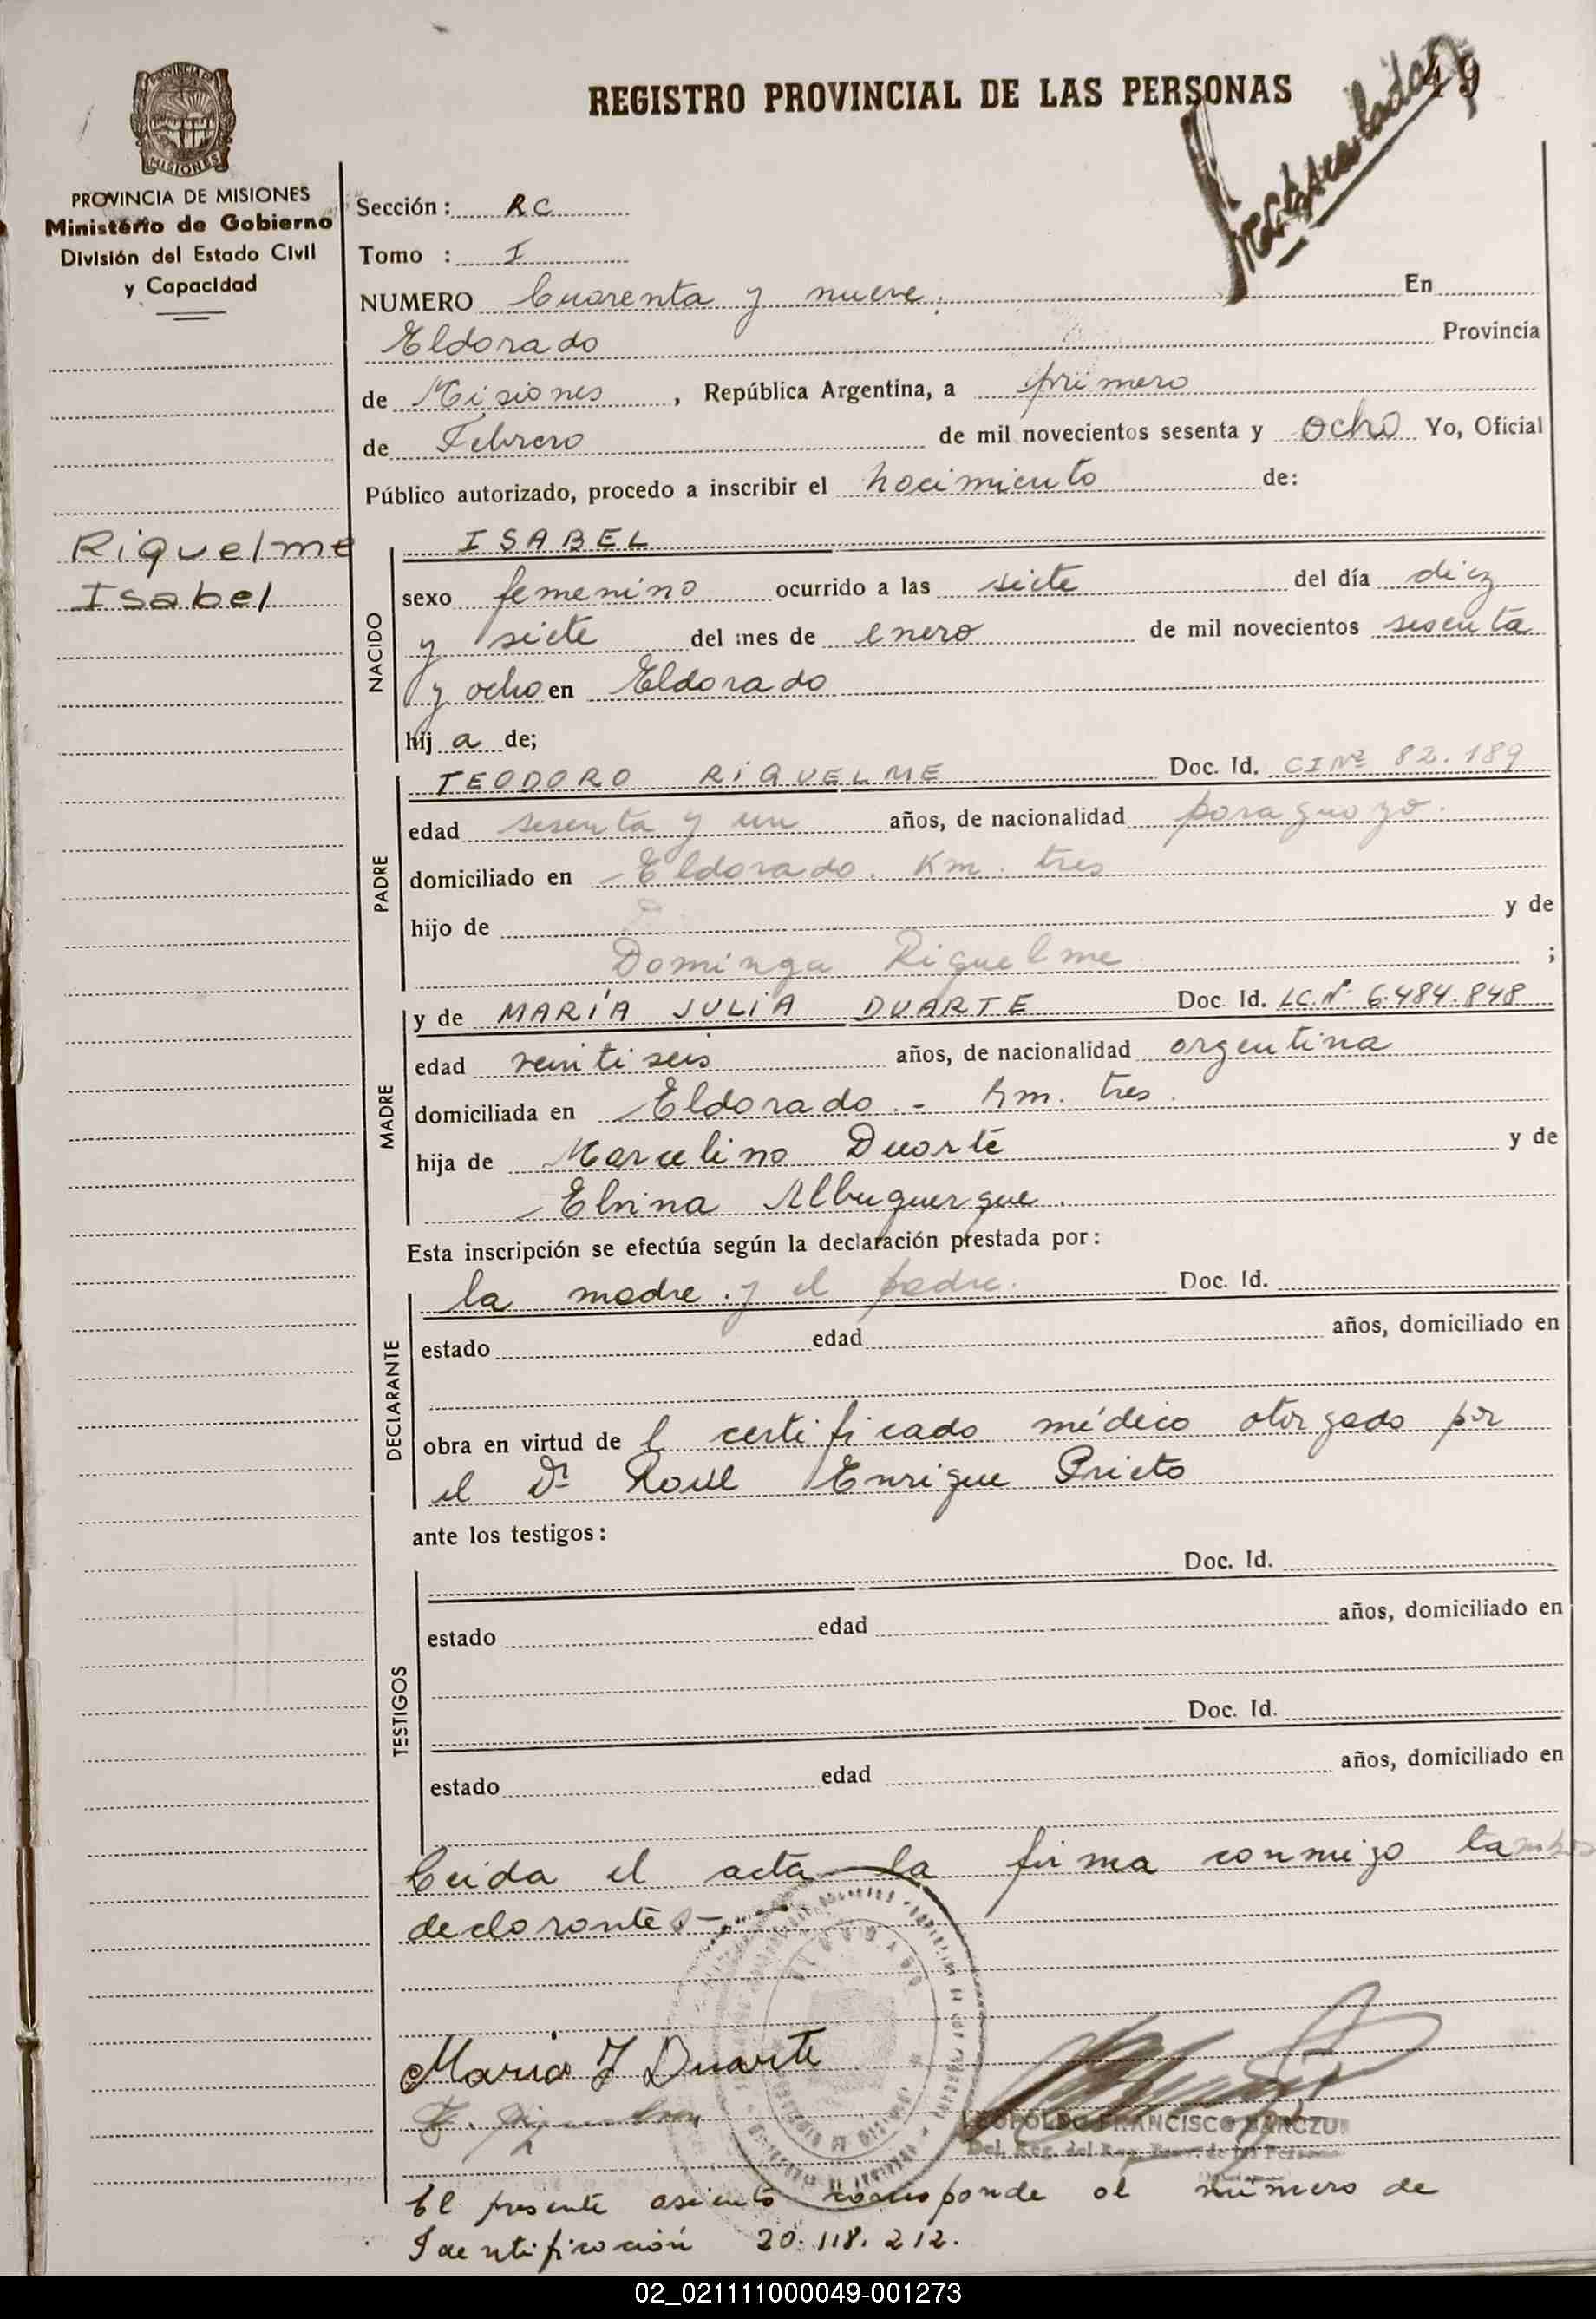 49
REGISTRO PROVINCIAL DE LAS PERSONAS
PROVINCIA DE
MISIONES
PROVINCIA DE MISIONES
Ministerio de Gobierno
División del Estado Civil
y Capacidad
Sección: RC
Tomo : I
NUMERO Cuarenta y nueve. En
Eldorado Provincia
de Misiones, República Argentina, a primero
de Febrero de mil novecientos sesenta y ocho Yo, Oficial
Público autorizado, procedo a inscribir el nacimiento de:
Riquelme
Isabel
NACIDO
ISABEL
sexo femenino ocurrido a las siete del día diez
y siete del mes de enero de mil novecientos sesenta
y ocho en Eldorado
hija de;
PADRE
TEODORO RIQUELME Doc. Id. CI Nº 82.189
edad sesenta y un años, de nacionalidad paraguayo.
domiciliado en Eldorado. Km. tres
hijo de y de
Dominga Riquelme ;
MADRE
y de MARÍA JULIA DUARTE Doc. Id. LC. Nº 6.484.848
edad veinti seis años, de nacionalidad argentina
domiciliada en Eldorado. - Km. tres.
hija de Marcelino Duarte y de
Elvina Albuquerque.
Esta inscripción se efectúa según la declaración prestada por:
DECLARANTE
la madre. y el padre. Doc. Id.
estado edad años, domiciliado en
obra en virtud del certificado médico otorgado por
el Dr Raul Enrique Prieto
ante los testigos:
TESTIGOS
Doc. Id.
estado edad años, domiciliado en
Doc. Id.
estado edad años, domiciliado en
Leida el acta la firma conmigo
declarantes-.
Maria J Duarte
LEOPOLDO FRANCISCO
El presente asiento corresponde al número de
Identificación 20.118.212.
02_021111000049-001273